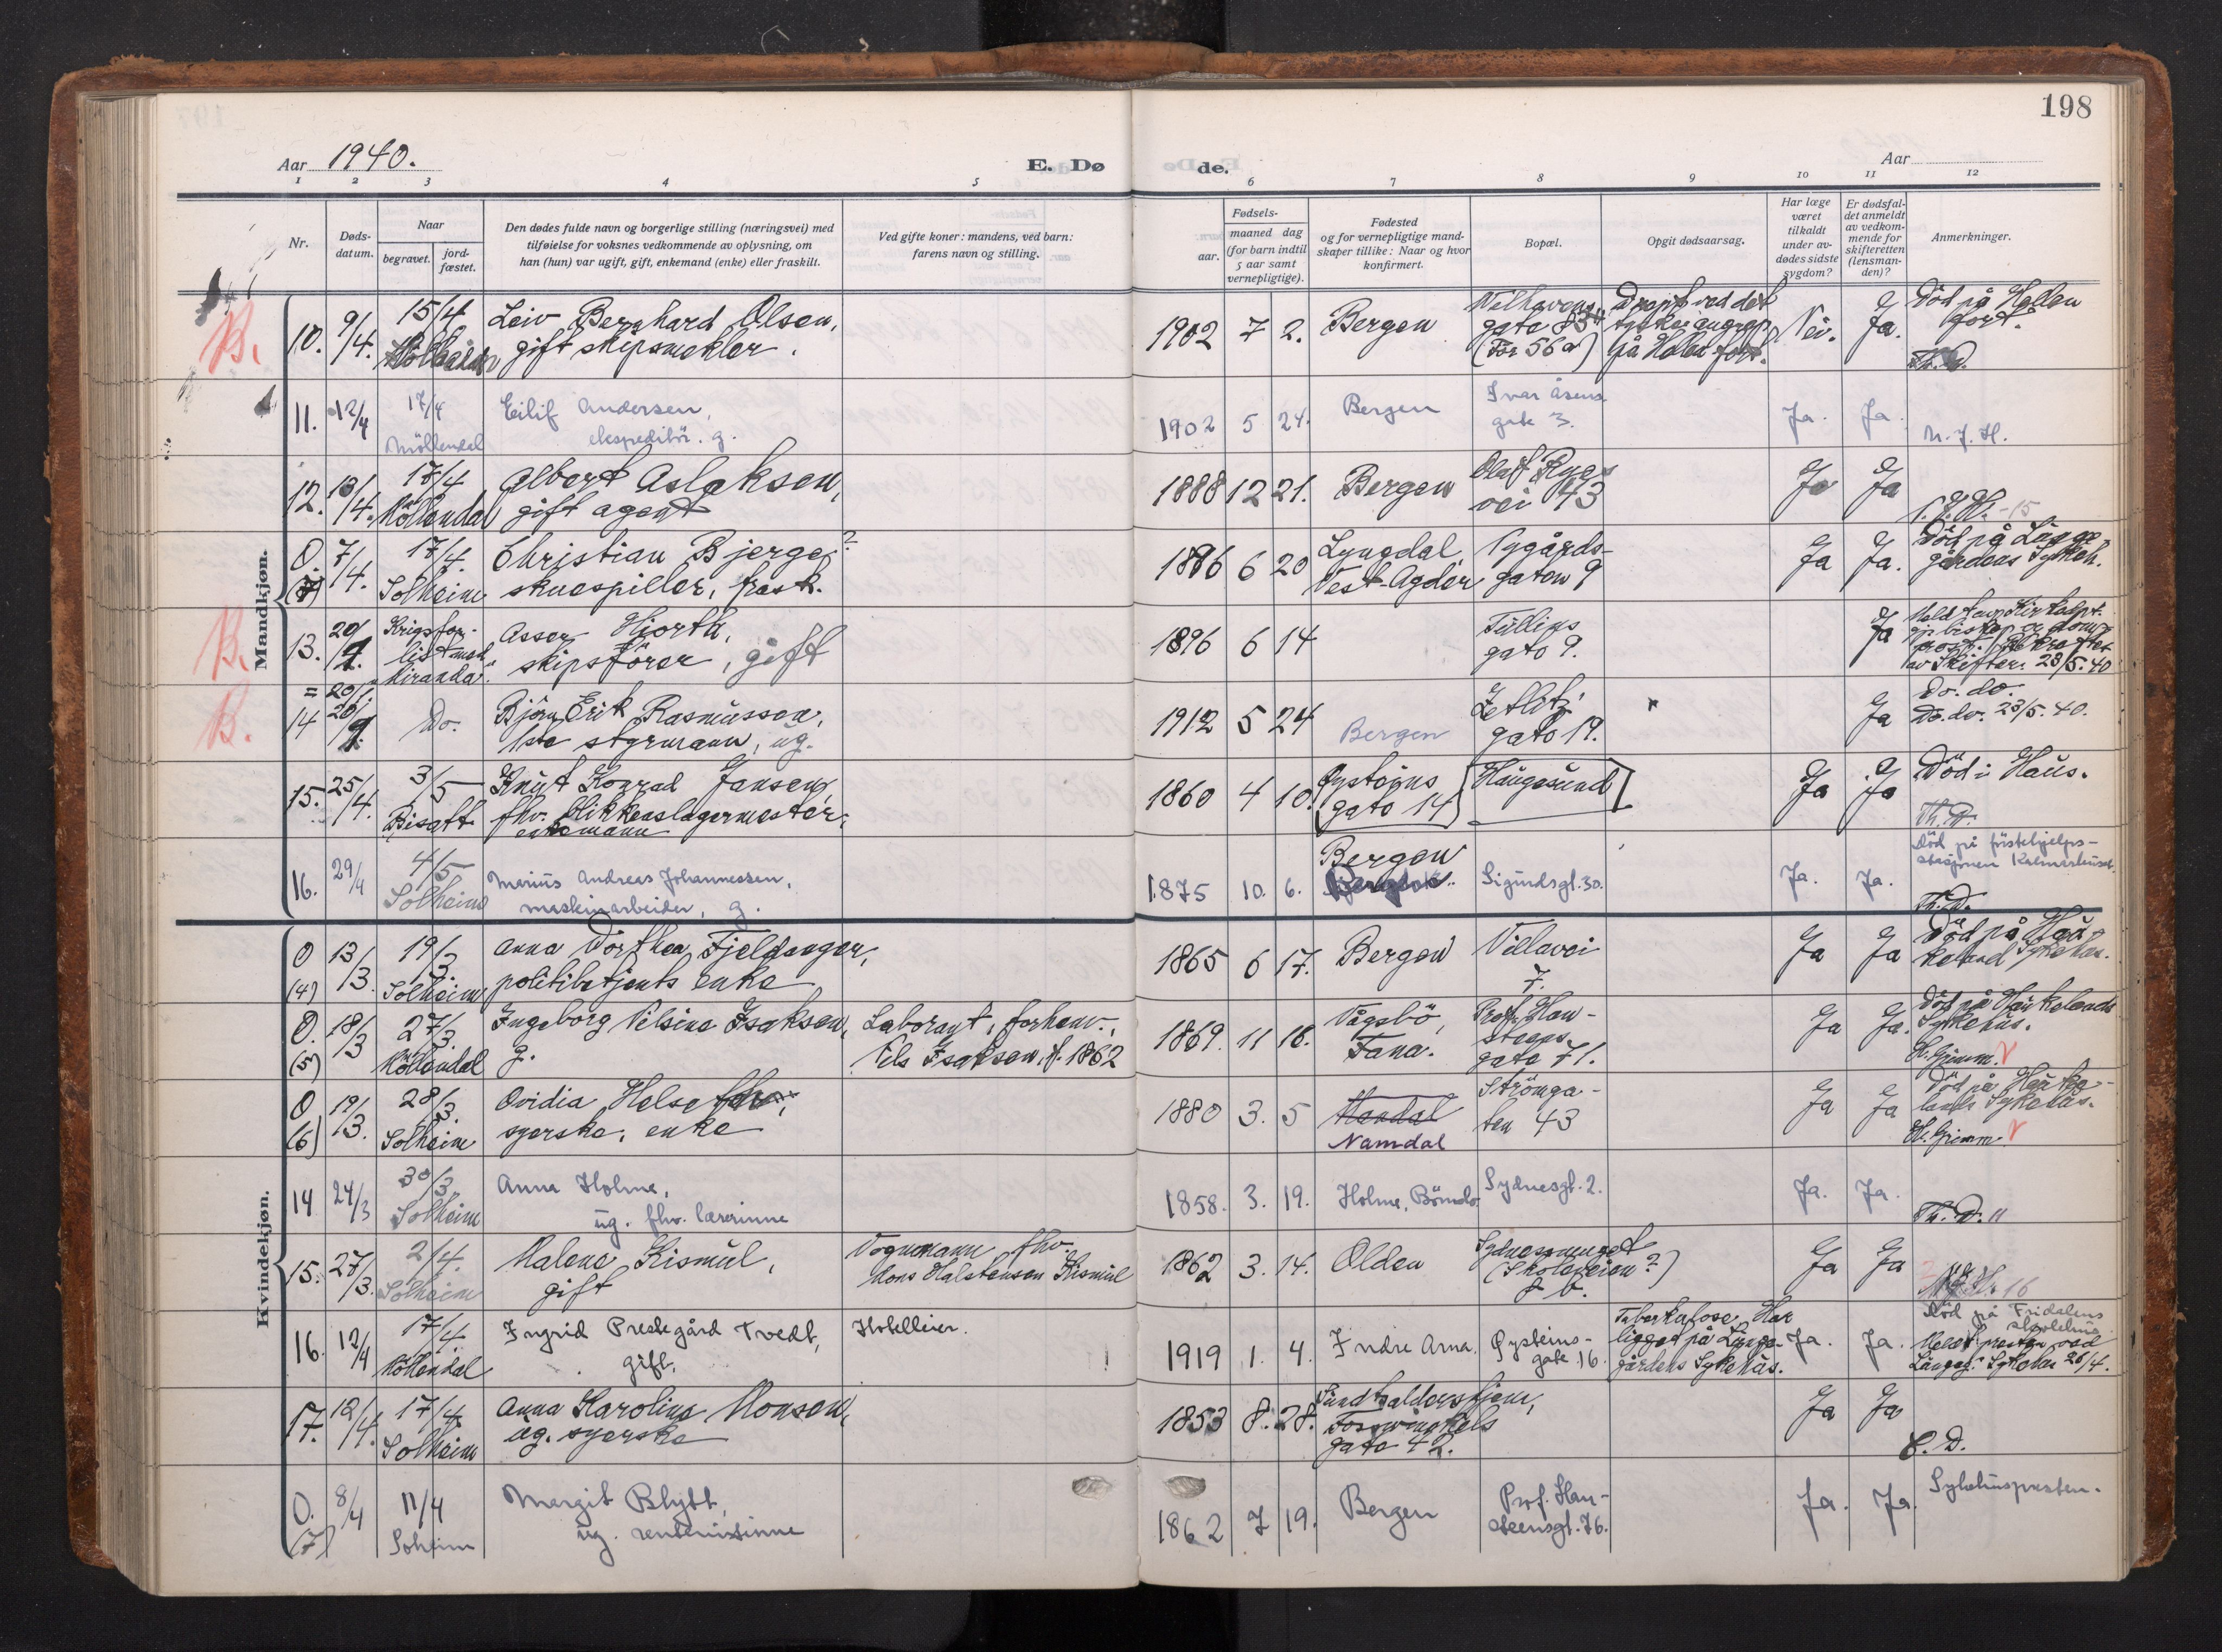 198
Aar 1940.
E. Dø
de.
Aar
1 2 3 4 5 6 7 8 9 10 11 12
Nr.
Døds-
datum.
Naar
begravet.
jord-
fæstet.
Den dødes fulde navn og borgerlige stilling (næringsvei) med
tilføielse for voksnes vedkommende av oplysning, om
han (hun) var ugift, gift, enkemand (enke) eller fraskilt.
Ved gifte koner: mandens, ved barn:
farens navn og stilling.
Fødsels-
aar.
maaned dag
(for barn indtil
5 aar samt
vernepligtige).
Fødested
og for vernepligtige mand-
skaper tillike: Naar og hvor
konfirmert.
Bopæl.
Opgit dødsaarsag.
Har læge
været
tilkaldt
under av-
dødes sidste
sygdom?
Er dødsfal-
det anmeldt
av vedkom-
mende for
skifteretten
(lensman-
den)?
Anmerkninger.
Mandkjøn.
B.
10. 9/4. 15/4
Leiv Bernhard Olsen,
gift skipsmekler.
1902 7 2. Bergen
Welhavens
gate
(før 56a)
Drept ved det
tyske angrep
på Hellen fort.
Nei. Ja.
Död på Hellen
fort.
Th. D.
11. 12/4 17/4
Möllendal
Eilif Andersen,
ekspeditör. g.
1902 5 24. Bergen
Ivar Åsens
gate 3.
Ja. Ja.
N. J. H.
12. 13/4. 17/4
Möllendal
Albert Aslaksen,
gift agent
1888 12 21. Bergen
Olaf Ryes
vei 43
Ja Ja
O. 7/4. 17/4.
Solheim
Christian Bjerge
skuespiller, frask.
1886 6 20
Lyngdal
Vest-Agder
Nygårds-
gaten 9
Ja Ja.
Död på Lügge-
gårdens Sykeh.
B.
13. 20/1.
Krigsfor-
list med
"Miranda"
Asser Hjorth,
skipsförer, gift
1896 6 14
Tüllins
gate 9.
Ja
av Skifter. 23/5.40
B.
= 20/1.
14 20/1. Do.
Björn Erik Rasmussen,
1ste styrmann, ug.
1912 5 24 Bergen
Zetlitz
gate 19.
Ja
Do. do.
Do. do. 23/5. 40.
15. 25/4. 3/5
Bisatt
Knut Konrad Jansen,
fhv. blikkenslagermester,
enkemann
1860 4 10.
Øysteins
gate 14
[Haugesund]
Ja Ja
Död i Haus.
Th. D.
16. 29/4 4/5
Solheim
Marius Andreas Johannessen,
maskinarbeider, g.
1875 10. 6.
Bergen
Sigurdsgt. 30.
Ja. Ja.
Död på förstehjelps-
stasjonen Kalmarhuset.
Th. D.
Kvindekjøn.
O (4) 13/3. 19/3.
Solheim
Anna Dorthea Fjeldanger,
politibetjents enke
1865 6 17. Bergen
Villavei
7.
Ja Ja
Död på Hau-
keland Sykehus.
O. (5) 18/3 27/3.
Möllendal
Ingeborg Nilsine Isaksen,
g.
Laborant, forhenv.,
Nils Isaksen, f. 1862
1869. 11 18.
Vågsbö,
Fana.
Prof. Han-
steens
gate 71.
Ja Ja.
Död på Haukelands
Sykehus.
H. Grimm. V
O (6) 19/3. 28/3.
Solheim
Ovidia Helse
syerske, enke
1880 3. 5
Mandal
Namdal
Strömga-
ten 43
Ja Ja
Död på Hauke-
lands Sykehus.
H. Grimm. V
14 24/3 30/3
Solheim
Anna Holme,
ug. fhv. lærerinne
1858. 3. 19. Holme, Bömlo.
Sydnesgt. 2.
Ja. Ja.
Th. D. 11
15. 27/3. 2/4.
Solheim
Malene Kismul,
gift
Vognmann fhv.
Mons Halstensen Kismul
1862 3. 14. Olden
Sydnessmuget
(Skoleveien?)
Ja Ja
16
16. 12/4 17/4
Möllendal
Ingrid Prestegård Tvedt,
gift,
Hotelleier.
1919 1. 4. Indre Arna.
Øysteins-
gate 16.
Tuberkulose. Har
ligget på Lügge-
gårdens Sykehus.
Ja. Ja.
Död på Fridalens
skolehus.
Meldt presten ved
Lüngeg. Sykehus 26/4.
17. 12/4. 17/4
Solheim
Anna Karoline Monsen,
ug. syerske
1853 8. 28.
gate 42.
Ja Ja
C. D.
O. (7) 8/4 11/4
Solheim
Margit Blytt,
ug. rentenistinne
1862 7 19. Bergen
Prof. Han-
steensgt. 76.
Ja. Ja.
Sykehuspresten.